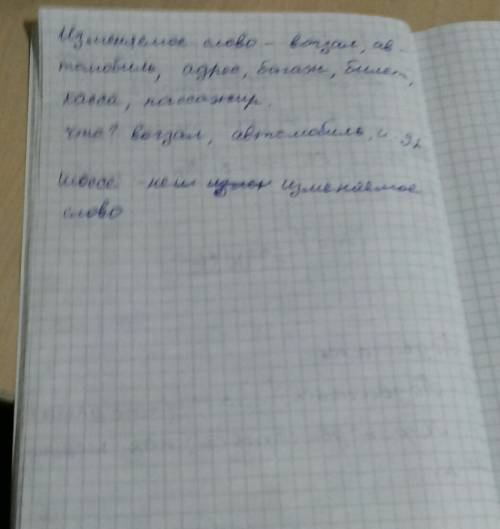 Изменяемое слово - вокзал, ав-
томобиль, адрес, багаж, билет,
касса, пассажир.
Что? вокзал, автомобиль, и
шоссе неи изменяемое
слово